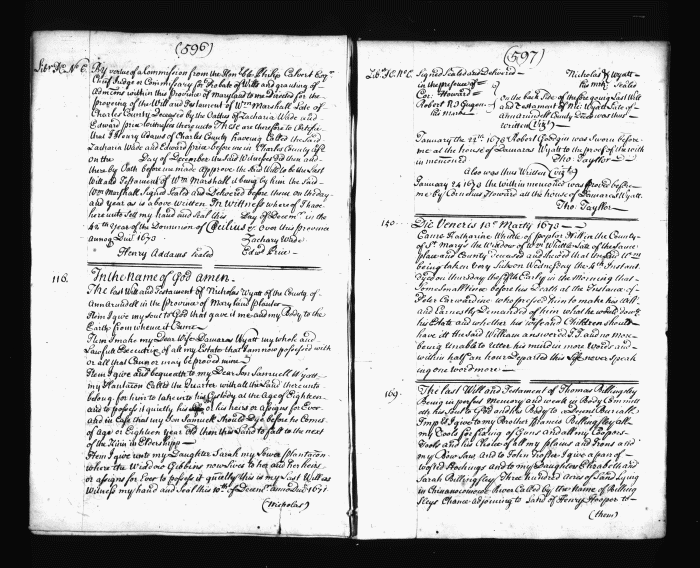 (596)
Lib.r No. C. By vertue of a Commission from the Hon.ble Philip Calvert Esq.r
Chief Judge or Commissary for Probate of Wills and granting of
Admcons within this Province of Maryland to me Directed for the
proveing of the Will and Testament of Wm. Marshall Late of
Charles County deceased by the Oathes of Zacharia Wade and
Edward Price Witnesses thereunto These are therefore to Certifie
that I Henry Adams of Charles County haveing Called the said
Zacharia Wade and Edward Price before me in Charles County
on the Day of December the said Witnesses did then and
there by Oath before me made approve the said Will to be the Last
Will and Testament of Wm. Marshall it being by him the said
Wm. Marshall Signed Seald and Delivered before them on the day
and year as is above Written In Wittness where of I have
here unto Sett my hand and Seal this Day of Decem.r in the
42th Year of the Dominion of Cecilius &c. Over this province
annoq Dom 1673 Zachary Wade
Henry Addams Sealed Edw.d Price
116. In the name of God Amen.
The last Will and Testament of Nicholas Wyatt of the County of
Ann Arundell in the Province of Maryland planter
Item I give my Soul to God that gave it me and my Body to the
Earth from whence it Came
Item I make my Dear Wife Damaras Wyatt my whole and
Lawfull Executrix of all my Estate that I am now posessed with
or all that Cann or may be proved mine
Item I give and bequeath to my Dear Son Samuell Wyatt
my Plantation Called the Quarter with all the Land thereunto
belong for him to take unto his Custody at the Age of Eighteen
and to possess it quietly his heirs or assigns for Ever
and in Case that my Son Samuell should Dye before he Comes
of Age or Eighteen Year old then this Land to fall to the next
of the Kinn in Eldershipp
Item I give unto my Daughter Sarah my plantacon
where the Widdow Gibbins now lives to her and her heirs
or assigns for Ever to possess it quietly this is my Last Will as
Witness my hand and Seal this 10th of Decem.r anno Dom 1671
(Nicholas)
(597)
Lib.r No. C. Signed Sealed and Delivered Nicholas Wyatt
in the presence of his mrk Sealed
Cor: Howard
Robert Gudgeon
his mark
on the back side of the fore going Last Will
and Testament of Nic: Wyatt Late of
Ann Arundell County Dec.d was thus
written (viz.t)
January the 22th 1673 Robert Goodgin was Sworn before
me at the house of Damaras Wyatt to the proof of the with
in menconed Tho: Taylor
Also was thus Written (viz.t)
January 24 1673 the within menconed was proved before
me by Cornelius Howard at the house of Damaras Wyatt
Tho: Taylor
140. Die Veneris 13o Martij 1673
Came Katharine Whittle of Poplar Hill in the County
of St. Marys the Widow of Wm. Whittle Late of the same
place and County deceased and shewed that the said Wm.
being taken very Sick on Wednesday the 4th Instant
dyed on thursday the fifth Early in the Morning that
Some Small time before his Death at the Instance of
Peter Carwardine who pressed him to make his Will
and Earnestly Demanded of him what he would doe wth
his Estate and whether his wife and Children should
have itt the said William answered I I and no more
being Unable to utter his mind in more Words and
within half an hour Departed this Life never Speak
ing one word more
169. The last Will and Testament of Thomas Billingsley
Being in perfect Memory and weak in Body Committ
eth his Soul to God and his Body to a Decent Buriall
Imp.s I give to my Brother James Billingsley all
my Tools for fixing of Guns and all my Coopers
Tools and his Choice of all my plains and Irons and
my Sow and to John Troster I give a pair of
Worsted Stockings and to my Daughters Elizabeth and
Sarah Billingsley Three hundred Acres of Land Lying
in Chinancomoco River Called by the Name of Billing
sleys Chance adjoyning to Land of Henry Hooper to
(them)